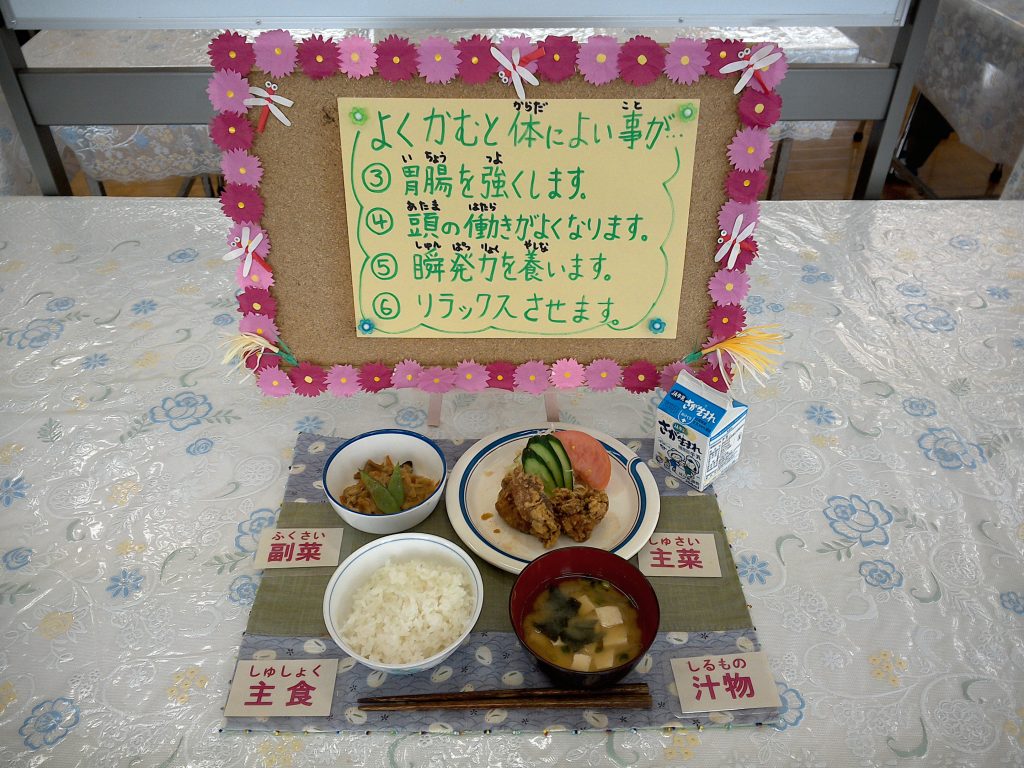 からだ こと
よくかむと体によい事が…
い ちょう つよ
③ 胃腸を強くします。
あたま はたら
④ 頭の働きがよくなります。
しゅん ぱつ りょく やしな
⑤ 瞬発力を養います。
⑥ リラックスさせます。
さが生まれ
さが生まれ
ふくさい
副菜
しゅさい
主菜
しゅしょく
主食
しるもの
汁物